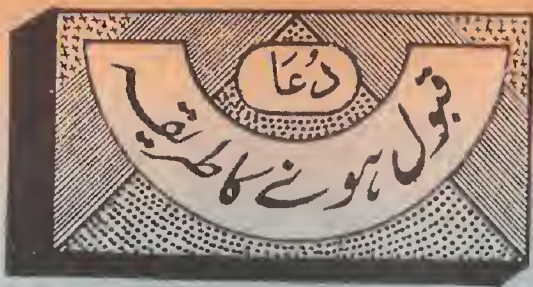 دُعَا
قبول ہونے کا طریقہ